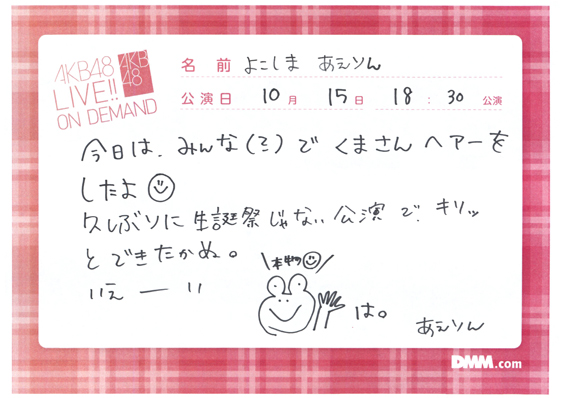 AKB48
LIVE!!
ON DEMAND
AKB
48
名 前 よこしま あぇりん
公演日 10月 15日 18:30 公演
今日は、みんな(ミ)で くまさん ヘアーを
したよ
久しぶりに 生誕祭じゃない 公演で、キリッ
とできたかぬ。
\本物 /
は。
あぇりん
DMM.com